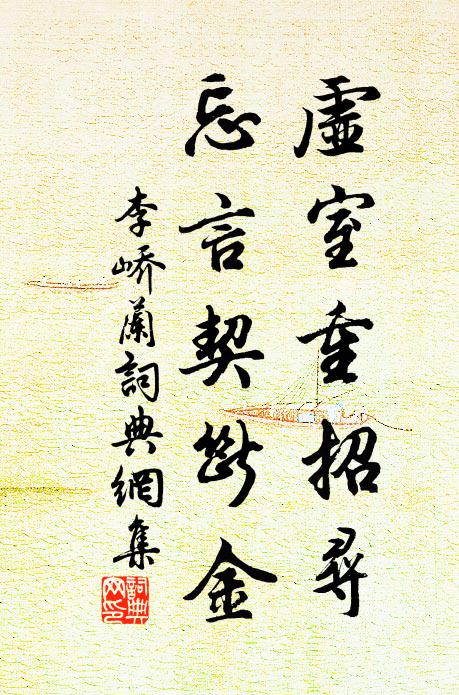 虛室重招尋
忘言契斷金
李嶠蘭詞典網集
詞典网印